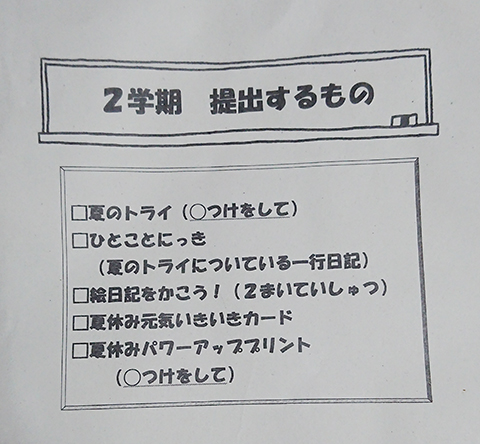 ２学期　提出するもの
□夏のトライ（○つけをして）
□ひとことにっき
（夏のトライについている一行日記）
□絵日記をかこう！（２まいていしゅつ）
□夏休み元気いきいきカード
□夏休みパワーアッププリント
（○つけをして）